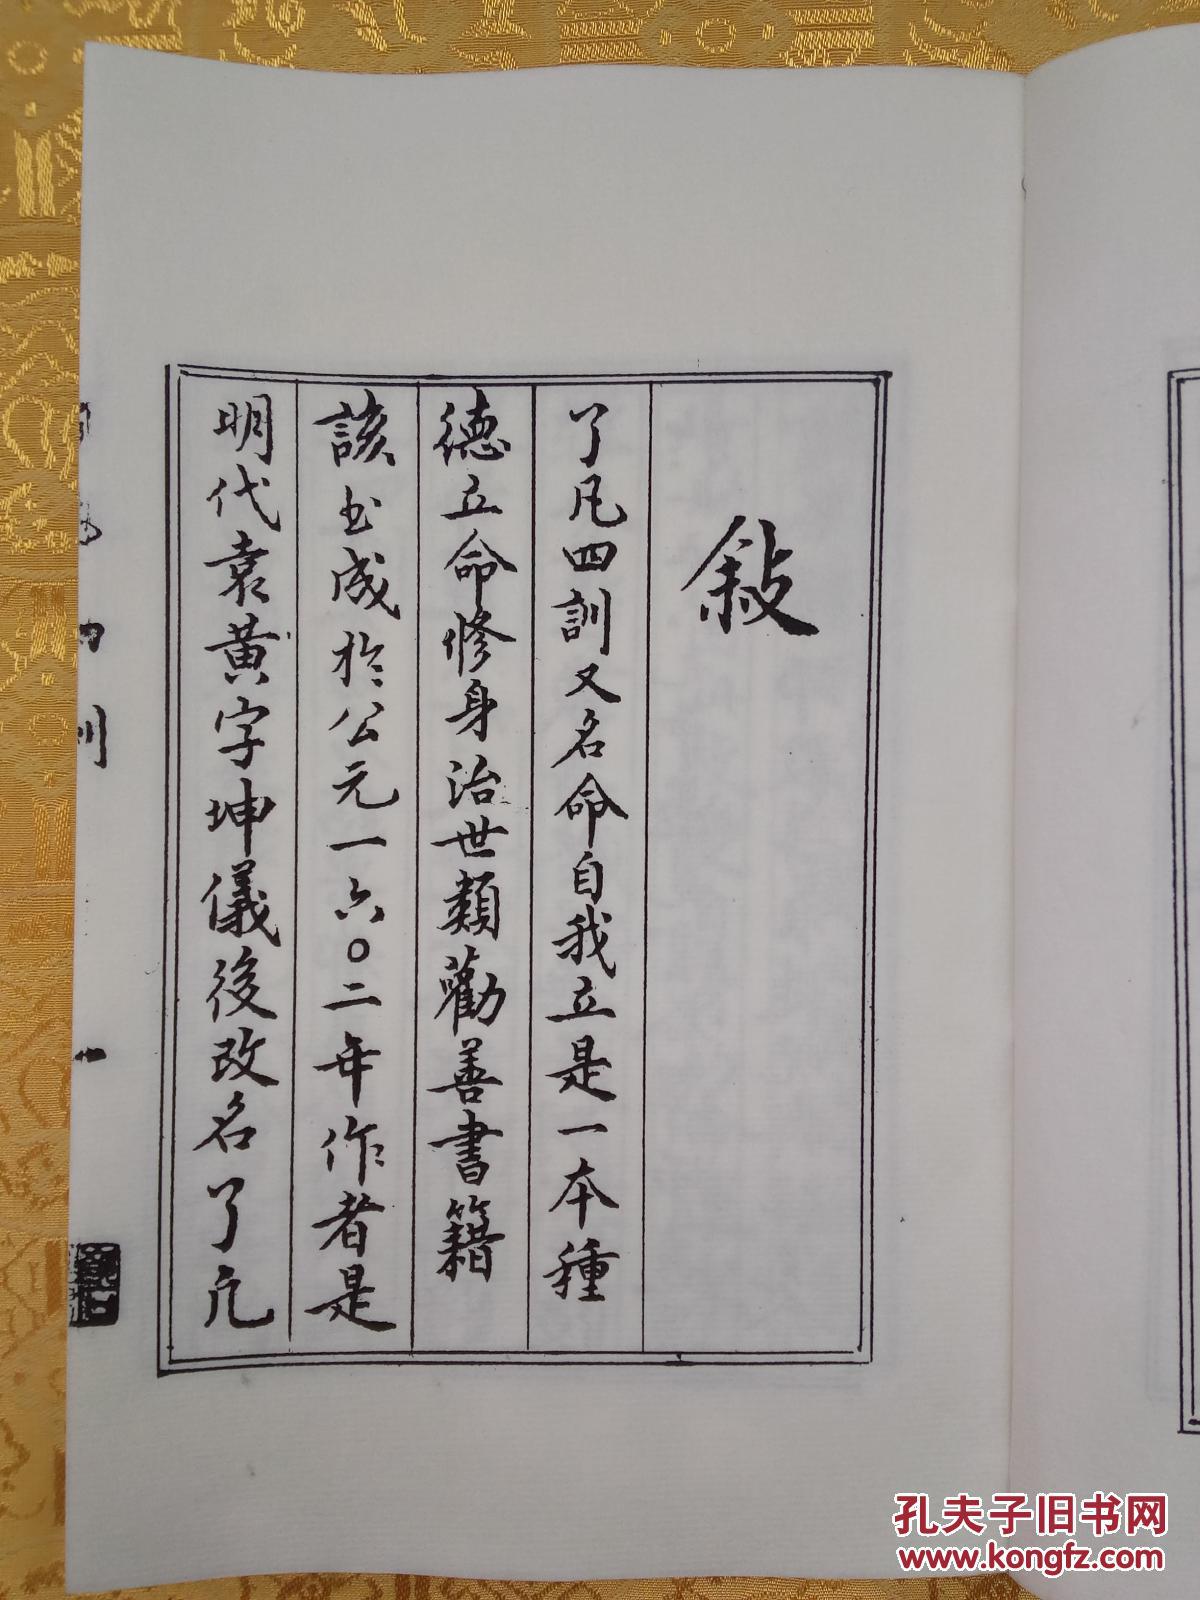 敍
了凡四訓又名命自我立是一本種
德立命修身治世類勸善書籍
該书成於公元一六〇二年作者是
明代袁黃字坤儀後改名了凡
孔夫子旧书网
www.kongfz.com